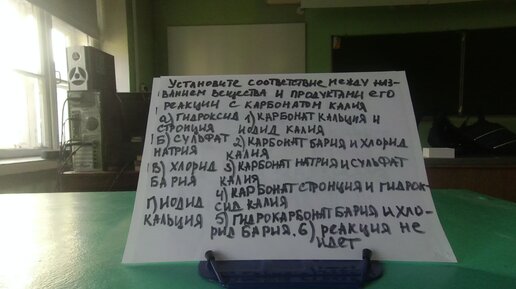 Установите соответствие между наз-
ванием вещества и продуктами его
реакции с карбонатом калия
а) гидроксид 1) карбонат кальция и
стронция иодид калия
Б) сульфат 2) карбонат бария и хлорид
натрия калия
В) хлорид 3) карбонат натрия и сульфат
бария калия
4) карбонат стронция и гидрок-
Г) иодид сид калия
кальция 5) гидрокарбонат бария и хло-
рид бария. 6) реакция не
идет